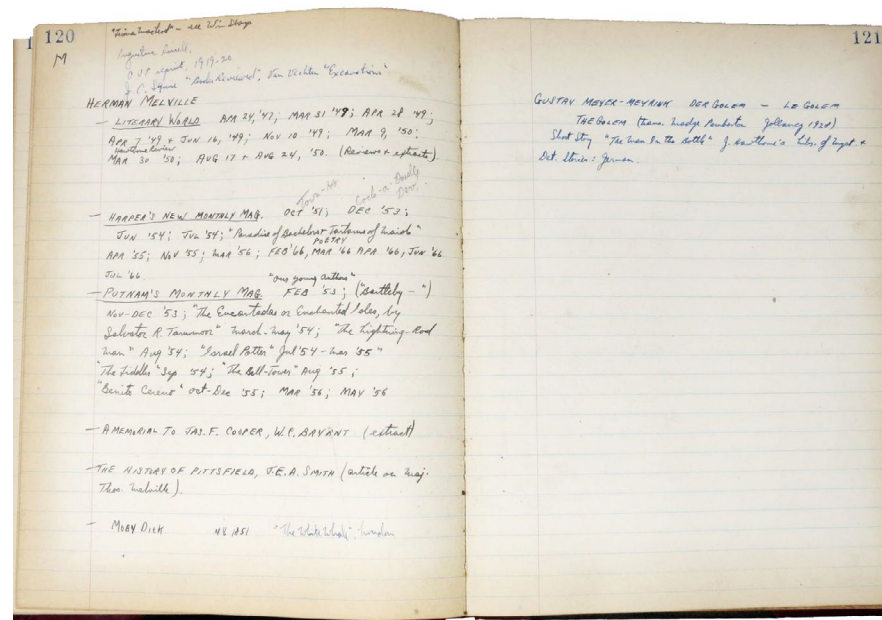 120
M
Augustine Birrell,
O.U.P. reprint, 1919-20
J. C. Squire "Books Reviewed", Van Vechten "Excavations"
HERMAN MELVILLE
— LITERARY WORLD APR 24, '47; MAR 31 '49; APR 28 '49;
APR 7 '49 + JUN 16, '49; NOV 10 '49; MAR 9, '50;
Hawthorne Review
MAR 30 '50; AUG 17 + AUG 24, '50. (Reviews + extracts).
Town-Ho
Cock-a-Doodle
Dec.
— HARPER'S NEW MONTHLY MAG. OCT '51; DEC '53;
JUN '54; JUL '54; "Paradise of Bachelors + Tartarus of Maids"
POETRY
APR '55; NOV '55; MAR '56; FEB '66, MAR '66 APR '66, JUN '66
JUL '66.
"Our young authors"
— PUTNAM'S MONTHLY MAG. FEB '53; ("Bartleby — ")
NOV-DEC '53; "The Encantadas or Enchanted Isles, by
Salvator R. Tarnmoor" March-May '54; "The Lightning-Rod
Man" Aug '54; "Israel Potter" Jul '54 - Mar '55"
"The Fiddler" Sep '54; "The Bell-Tower" Aug '55;
"Benito Cereno" Oct-Dec '55; MAR '56; MAY '56
— A MEMORIAL TO JAS. F. COOPER, W.C. BRYANT (extract)
— THE HISTORY OF PITTSFIELD, J.E.A. SMITH (article on Maj.
Thos. Melville).
— MOBY DICK NY 1851 "The White Whale", London
121
GUSTAV MEYER-MEYRINK DER GOLEM — LE GOLEM
THE GOLEM (trans. Madge Pemberton Gollancz 1928)
Short Story "The Man In the Bottle" J. Hawthorne's Libr. of Myst. +
Det. Stories: German.